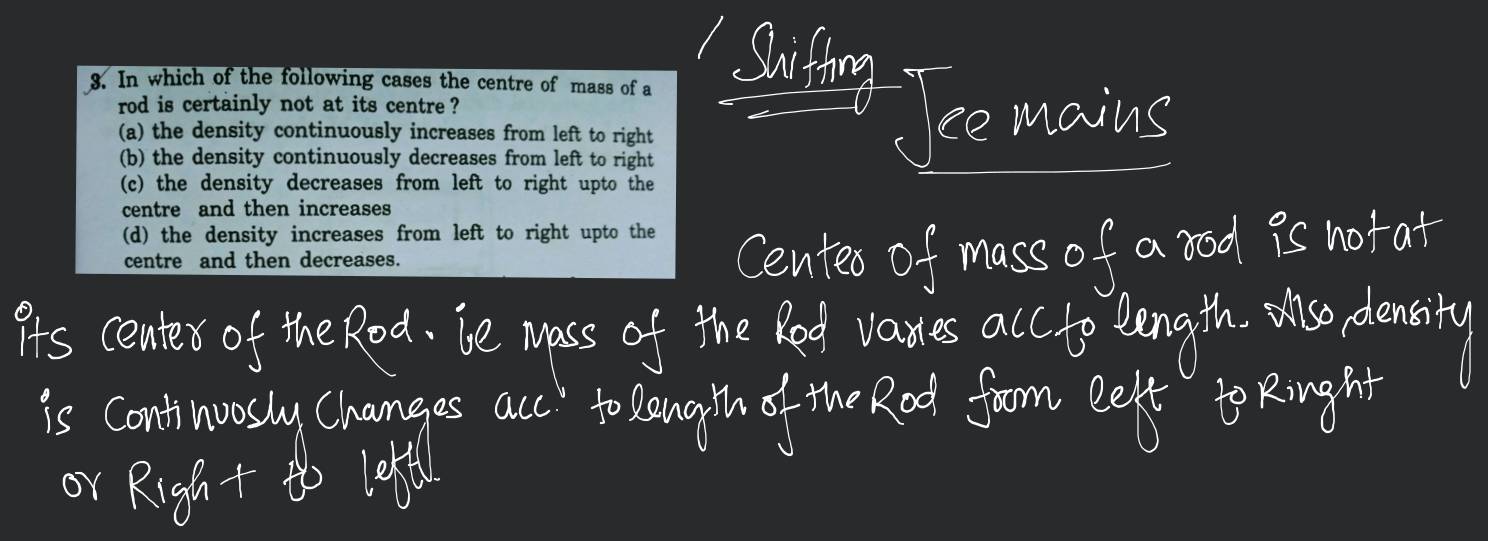 3. In which of the following cases the centre of mass of a
rod is certainly not at its centre ?
(a) the density continuously increases from left to right
(b) the density continuously decreases from left to right
(c) the density decreases from left to right upto the
centre and then increases
(d) the density increases from left to right upto the
centre and then decreases.
Shifting
Jee mains
Center of mass of a rod is not at
its center of the Rod. ie Mass of the Rod varies acc to length. Also density
is Continuosly Changes acc. to length of the Rod from left to Ringht
or Right to left.